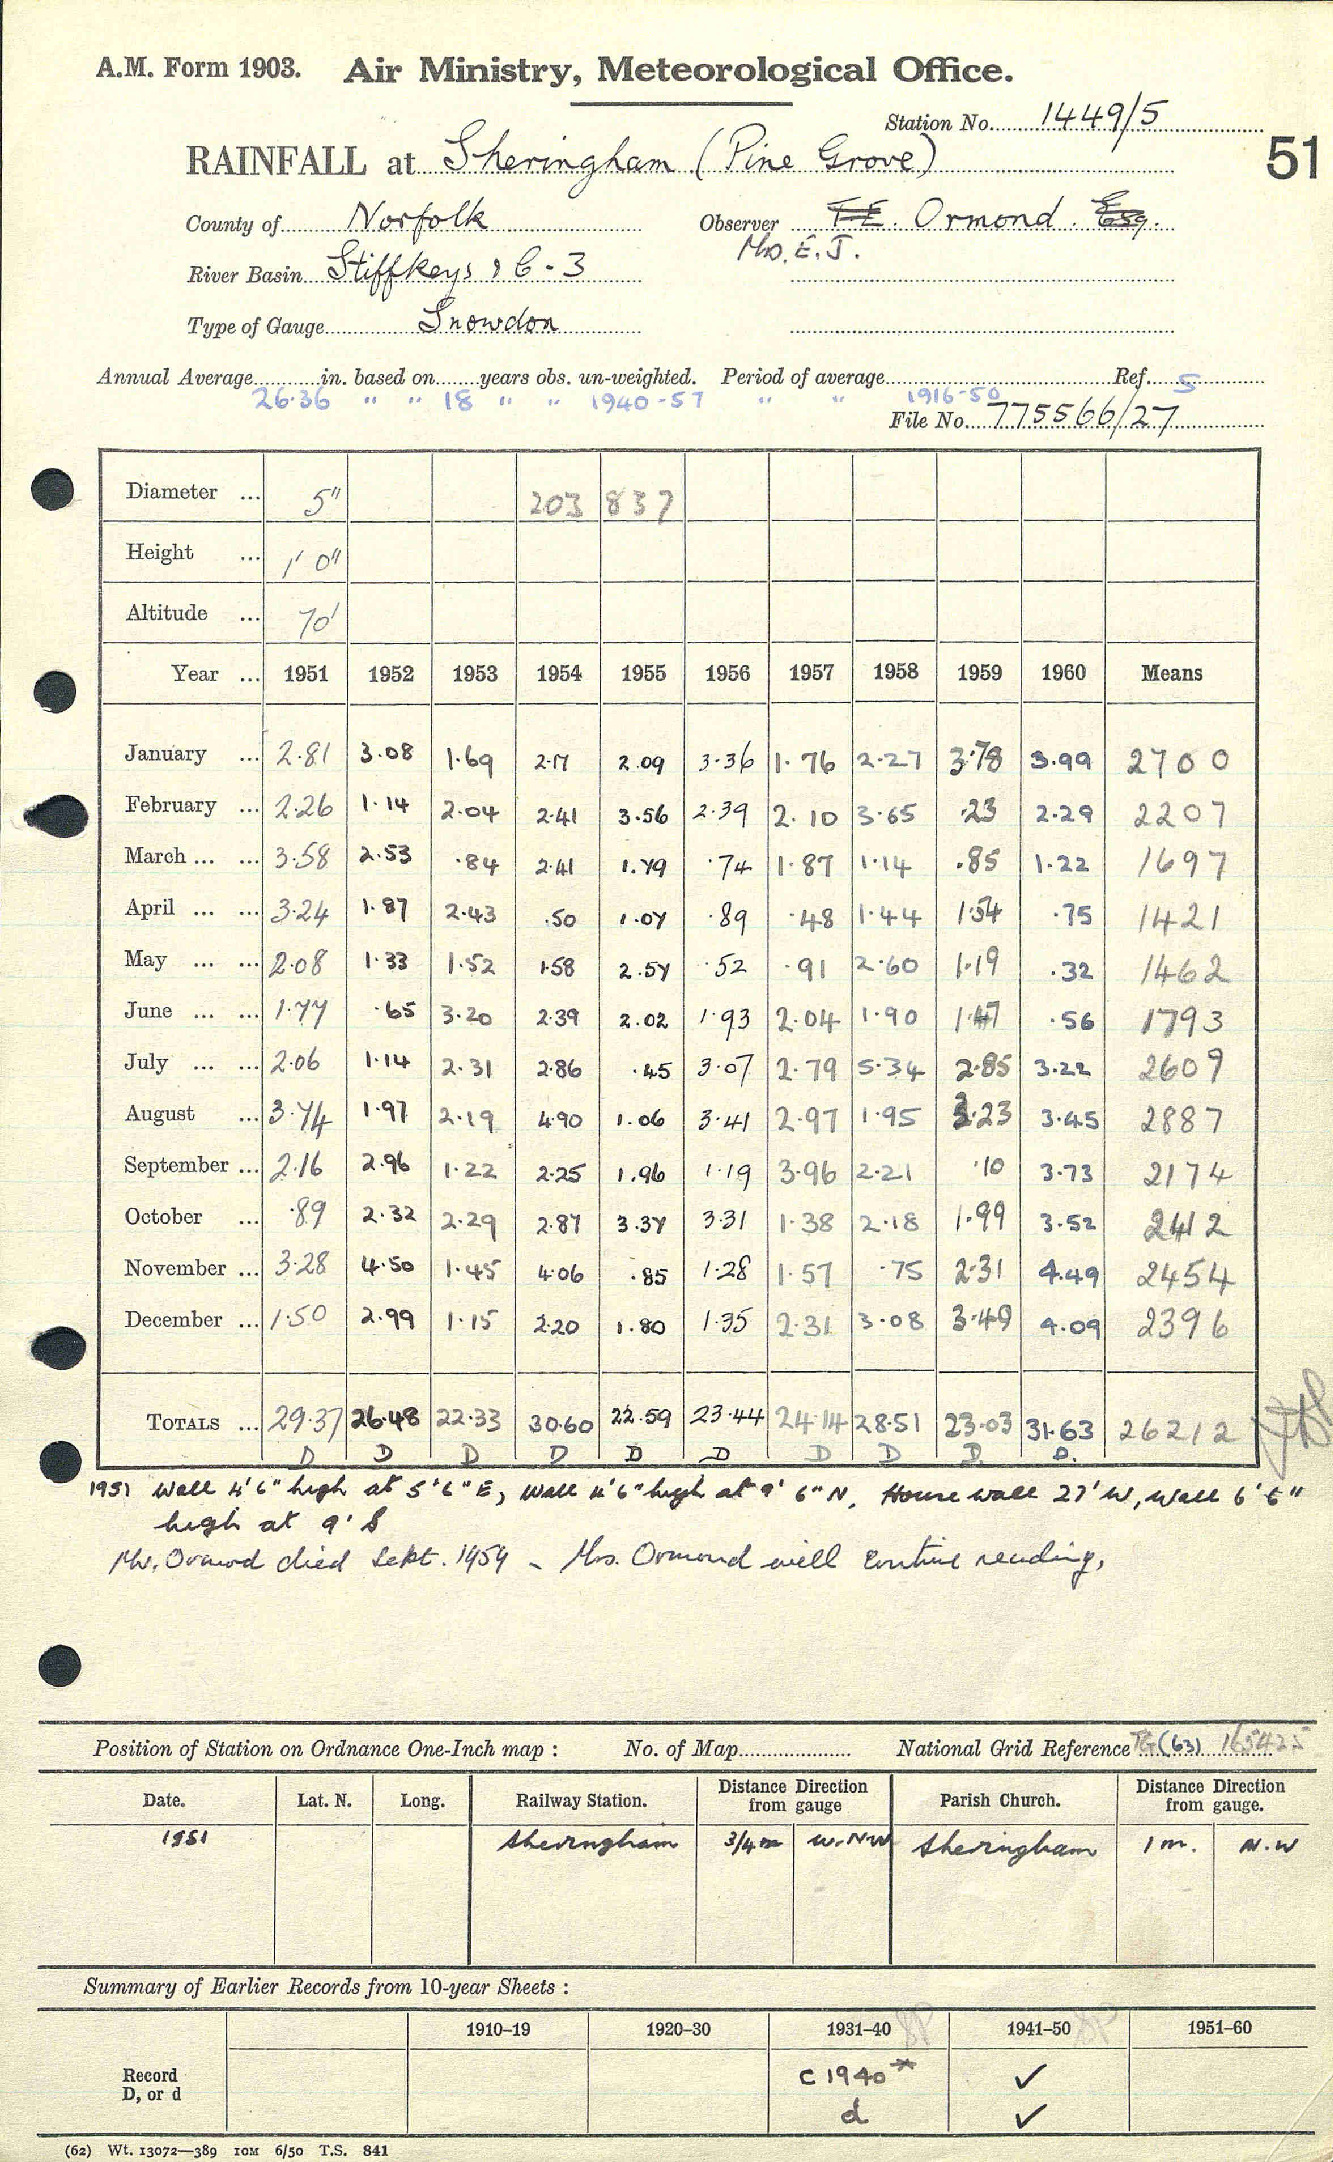 A.M. Form 1903. Air Ministry, Meteorological Office.
Station No. 1449/5
51
RAINFALL at Sheringham (Pine Grove)
County of Norfolk Observer F.E. Ormond. Esq.
Mrs. E. J.
River Basin Stiffkey, & C - 3
Type of Gauge Snowdon
Annual Average in. based on years obs. un-weighted. Period of average Ref. 5
26.36 " " 18 " " 1940-57 " " 1916-50
File No. 775566/27
Diameter ... 5" 203 837
Height ... 1' 0"
Altitude ... 70'
Year ... 1951 1952 1953 1954 1955 1956 1957 1958 1959 1960 Means
January ... 2.81 3.08 1.69 2.17 2.09 3.36 1.76 2.27 3.78 3.99 2700
February ... 2.26 1.14 2.04 2.41 3.56 2.39 2.10 3.65 .23 2.29 2207
March ... ... 3.58 2.53 .84 2.41 1.79 .74 1.87 1.14 .85 1.22 1697
April ... ... 3.24 1.87 2.43 .50 1.07 .89 .48 1.44 1.54 .75 1421
May ... ... 2.08 1.33 1.52 1.58 2.57 .52 .91 2.60 1.19 .32 1462
June ... ... 1.77 .65 3.20 2.39 2.02 1.93 2.04 1.90 1.47 .56 1793
July ... ... 2.06 1.14 2.31 2.86 .45 3.07 2.79 5.34 2.85 3.22 2609
August ... 3.74 1.97 2.19 4.90 1.06 3.41 2.97 1.95 3.23 3.45 2887
September ... 2.16 2.96 1.22 2.25 1.96 1.19 3.96 2.21 .10 3.73 2174
October ... .89 2.32 2.29 2.87 3.37 3.31 1.38 2.18 1.99 3.52 2412
November ... 3.28 4.50 1.45 4.06 .85 1.28 1.57 .75 2.31 4.49 2454
December ... 1.50 2.99 1.15 2.20 1.80 1.35 2.31 3.08 3.49 4.09 2396
TOTALS ... 29.37 26.48 22.33 30.60 22.59 23.44 24.14 28.51 23.03 31.63 26212
D D D D D D D D D. D.
1951 Wall 4'6" high at 5'6" E, Wall 4'6" high at 9' 6" N, House wall 27' W, Wall 6'6"
high at 9' S
Mr. Ormond died Sept. 1954 - Mrs. Ormond will continue reading,
Position of Station on Ordnance One-Inch map : No. of Map National Grid Reference TG (63) 165425
Date. Lat. N. Long. Railway Station. Distance from gauge Direction Parish Church. Distance from gauge. Direction
1951 Sheringham 3/4 m W.NW Sheringham 1 m. N.W
Summary of Earlier Records from 10-year Sheets :
1910–19 1920–30 1931–40 1941–50 1951–60
Record C 1940* ✓
D, or d d ✓
(62) Wt. 13072—389 10M 6/50 T.S. 841